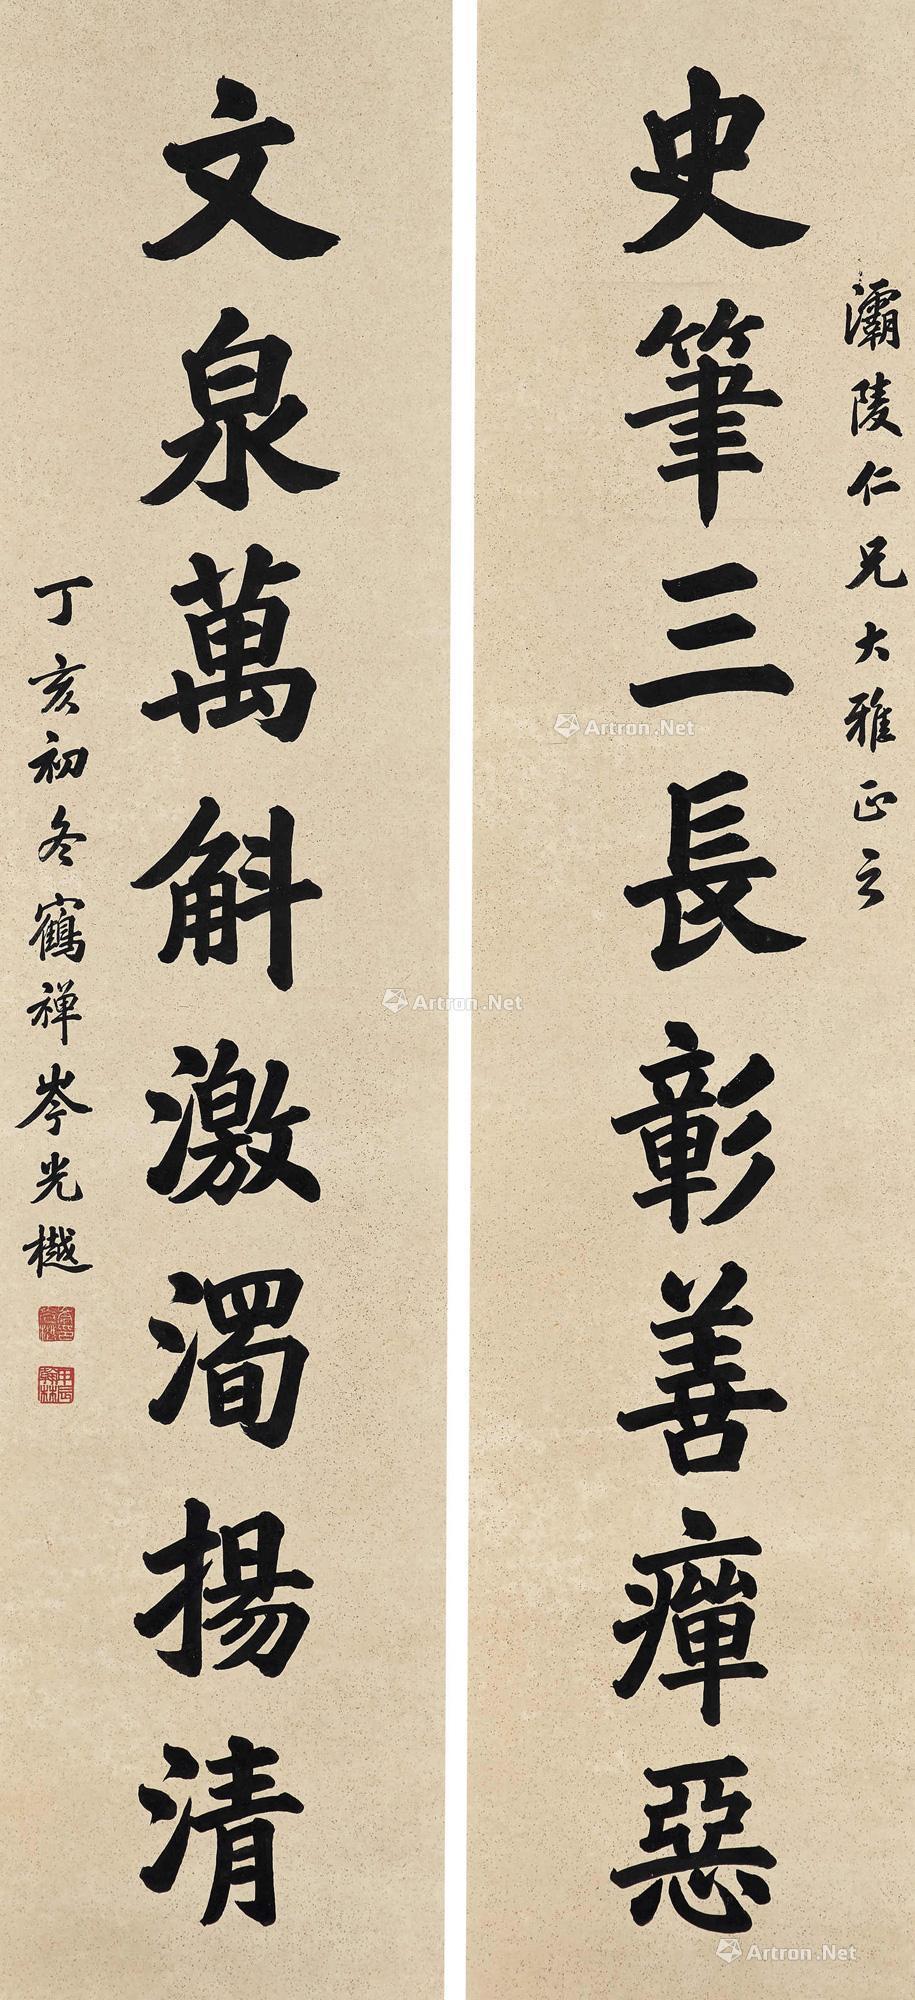 灞陵仁兄大雅正之
史筆三長彰善癉惡
文泉萬斛激濁揚清
丁亥初冬鶴禪岑光樾
甲辰翰林
Artron.Net
Artron.Net
Artron.Net